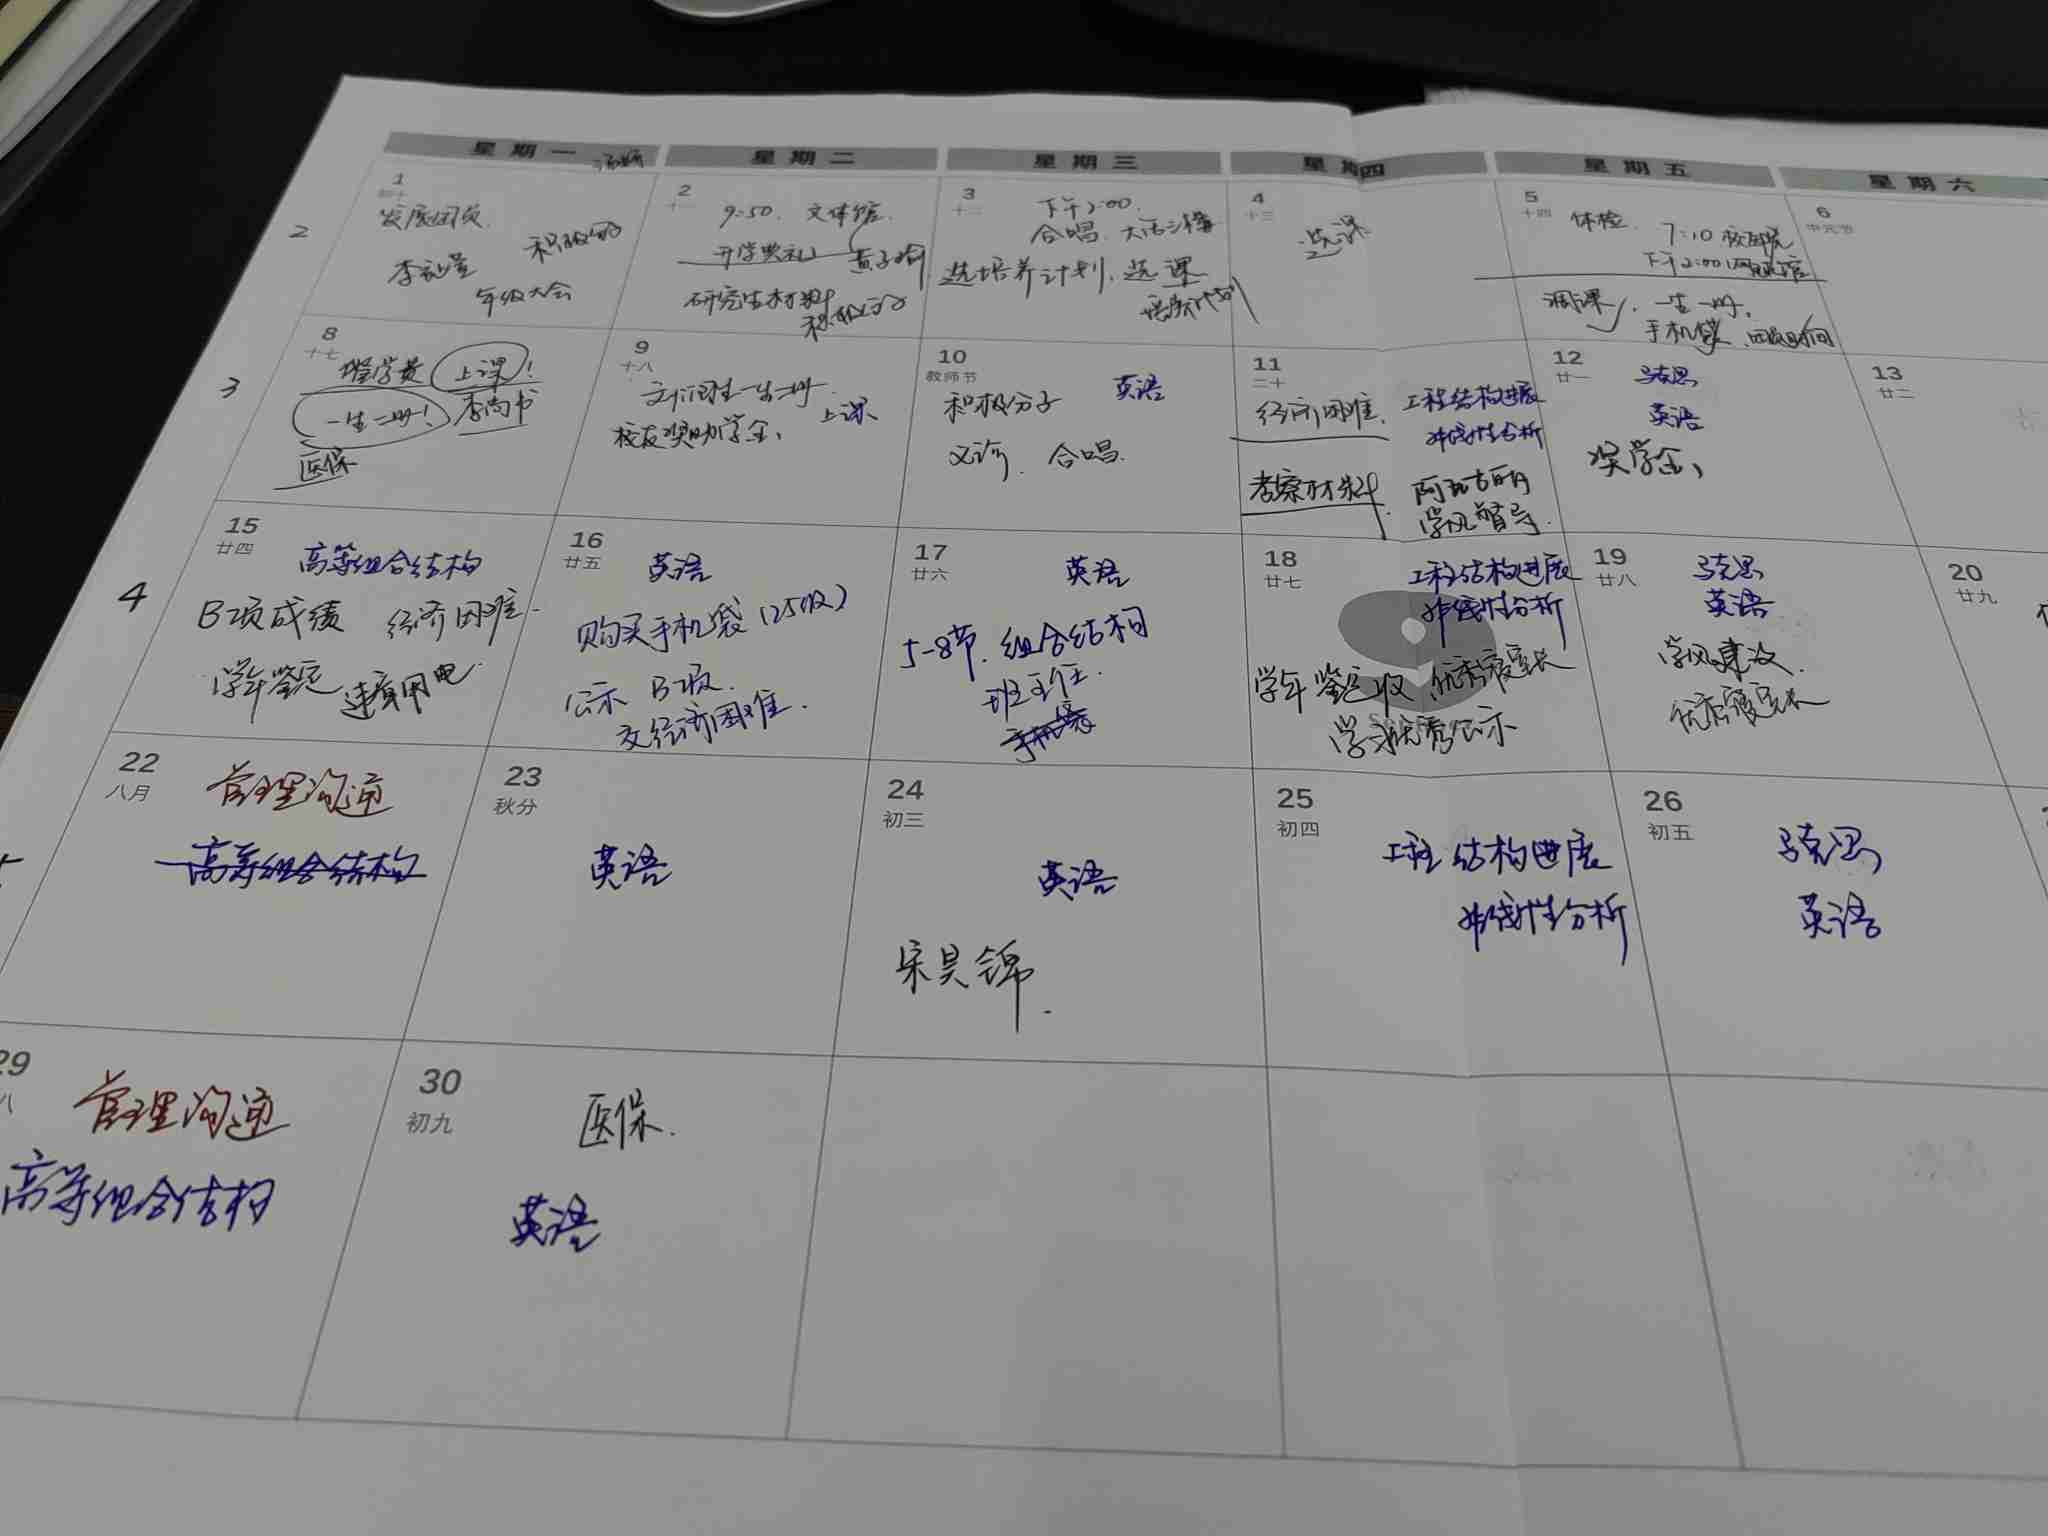 星期一 星期二 星期三 星期四 星期五 星期六
2
1
初十
发展团员
年级大会
2
十一
9:50. 文体馆
开学典礼
研究生材料
3
十二
下午2:00.
合唱.
选培养计划, 选课
培养计划
4
十三
选课
5
十四
体检. 7:10 校医院
下午2:00
调课 一生一册,
手机袋
6
中元节
3
8
十七
学费 上课!
一生一册! 李尚书
医保
9
十八
一生一册
校友奖助学金, 上课
10
教师节
英语
积极分子
合唱.
11
二十
经济困难. 工程结构进展
非线性分析
考察材料
学风督导.
12
廿一
马克思
英语
奖学金,
13
廿二
4
15
廿四
高等组合结构
B项成绩 经济困难.
学年鉴定 违章用电.
16
廿五
英语
购买手机袋(25级)
公示 B项.
交经济困难.
17
廿六
英语
5-8节. 组合结构
班主任.
手机袋
18
廿七
工程结构进展
非线性分析
学年鉴定收 优秀寝室长
学习优秀公示
19
廿八
马克思
英语
学风建设.
优秀寝室长
20
廿九
22
八月
管理沟通
高等组合结构
23
秋分
英语
24
初三
英语
宋昊锦.
25
初四
工程结构进展
非线性分析
26
初五
马克思
英语
29
八
管理沟通
高等组合结构
30
初九
医保.
英语